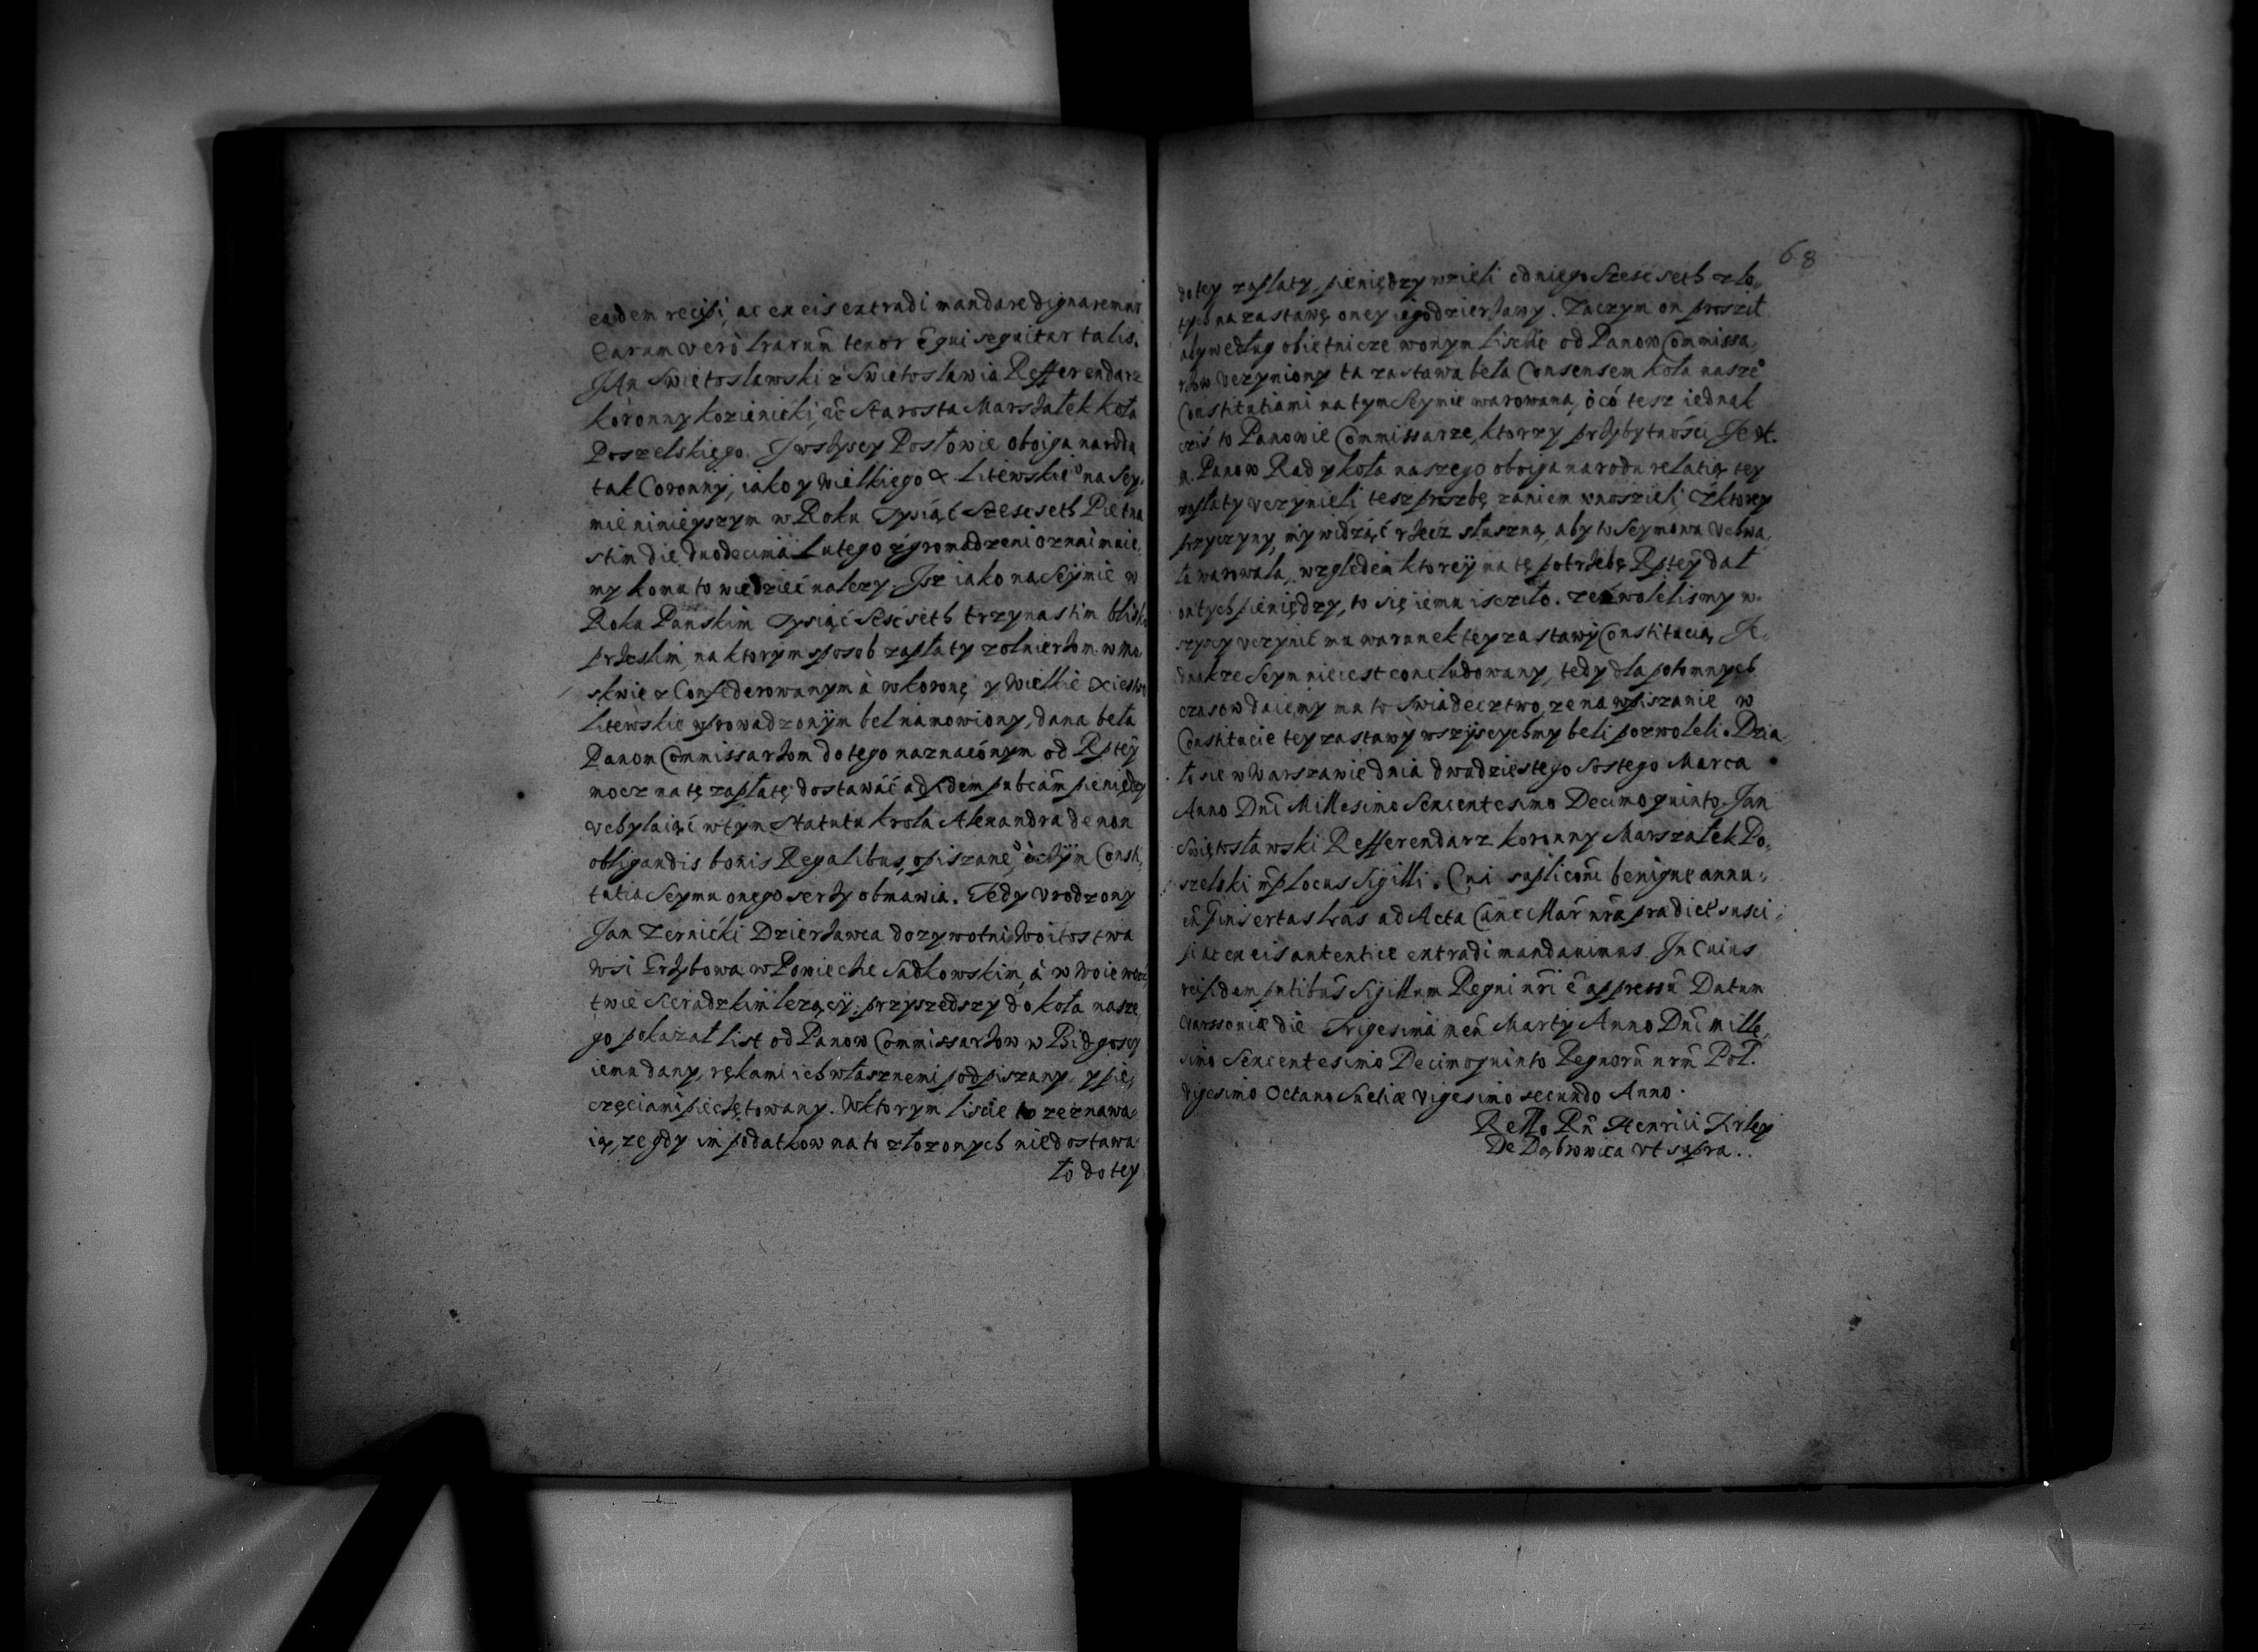 eadem recipi, ac ex eis extradi mandare dignaremur
Earum verò lrarum tenor e qui sequitur talis.
JAn Swiętoslawski z Swietoslawia Refferendarz
koronny kozienićki, ac Starosta Marszałek koła
Poszelskięgo. J wszyscy Posłowie oboiga naroda
tak Coronnj, iako y Wielkiego X Litewskieo na Sey,
mie niniegszym w Roku Tysiąć Szescseth Pietna
stim die duodecima Lutego zgromadzeni oznaimuie,
my komu to wiedzieć nalezy. Jsz iako na Seymie w
Roku Pańskim Tysiąć Sesćseth trzynastim blisko
przeslim na ktorym sposob zapłaty zolnierzom w Mo,
skwie z Confederowanym à w koronę y Wielkie Xiestwo
Litewskie wprowadzonym bel namowiony, dana beła
Panom Commissarzom do tego naznaćonym od Rptey
mocz na tę zapłatę dostawáć ad fidem pubcam pieniędzy
vchylaiąć w tym Statutu krola Alexandra de non
obligandis bonis Regalibus, opiszaneo, Consti,
tutia Seymu onego serzy obmawia. Tedy vrodzony
Jan Zernićki Dzierzawca dozywotni Woitostwa
Wsi Grzybowa w Powieche Sadkowskim, á w Woiewoc
twie Sieradzkim lezący, przyszedszy do koła nasze,
go pokazał list od Panow Commissarzow w Bidgosczy
iemu dany, rękami ich własznemi podpiszany, y pie,
częciami pieczętowany. W ktorym liscie to zeznawa,
ią, ze gdy im podatkow na to złozonych niedostawa
ło do tey
68
do tey zapłaty, pieniędzy wzieli od niego Szesćseth zło,
tych na zastawę oney iego dzierzawy. Zaczym on prosził
aby według obietnicze w onym liscie od Panow Commissa,
rzow vczyniony ta zastawa beła Consensem koła naszeo
Constitutiami na tym Seymie warowana, ò có tesz iednak
cziś to Panowie Commissarze, ktorzy przy bytności Je
m. Panow Rad y koła naszego oboiga narodu relatią tey
zapłaty vczynieli, tesz proszbę zaniem wnoszieli, Z ktorey
przyczyny, my widząć rzecż słuszną, aby to Seymowa vchwa,
ła warowała, względem ktorey na tę potrzebę Rptey dał
on tych pieniędzy, to się iemu iscziło. zezwolelismy w.
szyscy vczynić mu warunek tey zastawy Constitucią, Je,
dnakze Seym nie iest concludowany, tedy dla potomnych
czasow daiemy mu to swiadecztwo, ze na wpiszanie w
Constitucie tey zastawy wszyscychmy beli pozwoleli. Dzia,
ło sie w Warszawie dnia dwadziestego sostego Marca
Anno Dni Millesimo Sexcentesimo Decimo quinto. Jan
Swiętosławski Refferendarz koronny Marszałek Po,
szelski mp Locus Sigilli. Cui supliconi benigne annu,
en insertas lras ad Acta Canc Mar nra pradict susci,
pi ac ex eis autentice extradi mandauimus. Jn Cuius
rei fidem pntibus Sigillum Regni nri e appressu Datum
Varssoniæ die Trigesima men Marty Anno Dni mille,
simo Sexcentesimo Decimoquinto Regnoru nrm Pol.
vigesimo Octauo Sueliæ vigesimo secundo Anno.
Rello Rn Henrici Firley
De Dąbrowica vt supra..